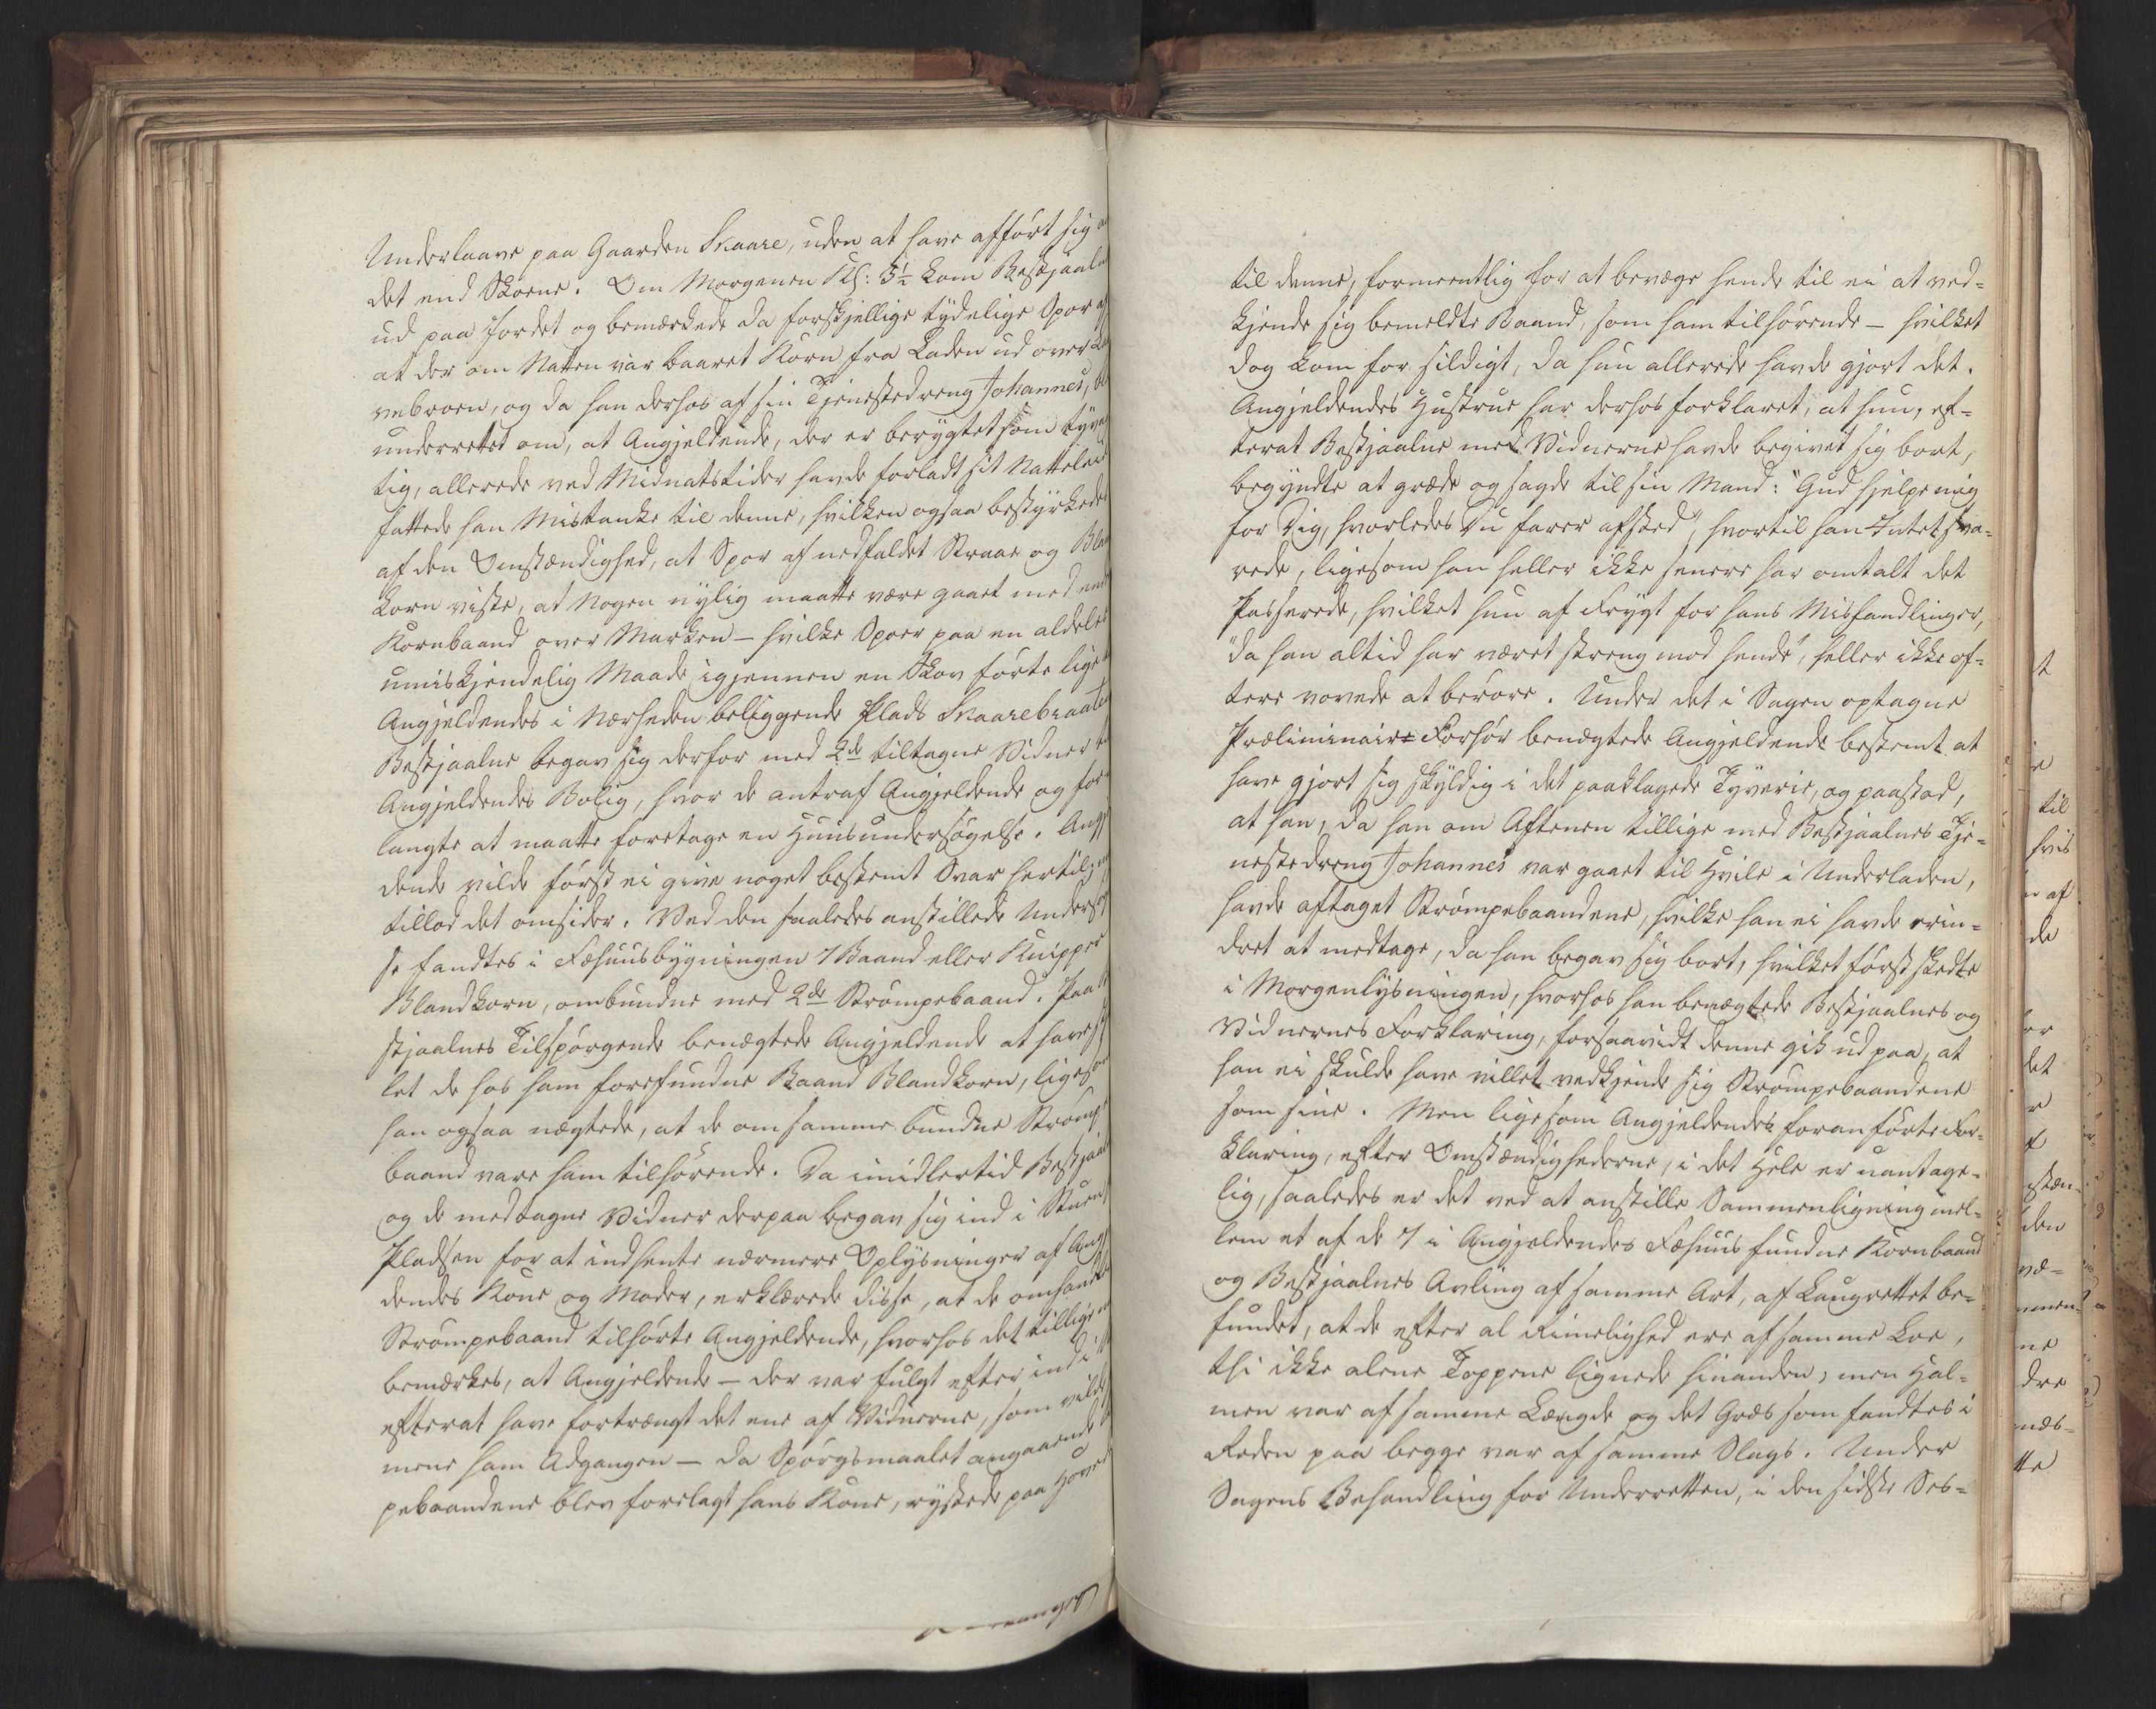 Underlaave paa Gaarden Skaare, uden at have afført sig
det end Skoene. Om Morgenen Kl: 3½ kom Bestjaalne
ud paa Jordet og bemærkede da forskjellige tydelige Spor af
at der om Natten var baaret Korn fra Laden ud over
vebroen, og da han derhos af sin Tjenestedreng Johannes,
underrettet om, at Angjeldende, der er berygtet som tyvag
tig, allerede ved Midnatstider havde forladt sit Natteleie
fattede han Mistanke til denne, hvilken ogsaa bestyrkedes
af den Omstændighed, at Spor af nedfaldet Straae og Bland
korn viste, at Nogen nylig maatte være gaaet med
Kornbaand over Marken – hvilke Spoer paa en aldeles
umiskjendelig Maade igjennem en Skov førte lige
Angjeldendes i Nærheden beliggende Plads Skaarebraaten
Bestjaalne begav sig derfor med 2de tiltagne Vidner
Angjeldendes Bolig, hvor de antraf Angjeldende og for
langte at maatte foretage en Huusundersøgelse. Angjel
dende vilde først ei give noget bestemt Svar hertil,
tillod det omsider. Ved den saaledes anstillede Undersøgel
se fandtes i Fæhuusbygningen 7 Baand eller Knipper
Blandkorn, ombundne med 2de Strømpebaand. Paa
stjaalnes Tilspørgende benægtede Angjeldende at have
let de hos ham forefundne Baand Blandkorn, ligesom
han ogsaa nægtede, at de om samme bundne Strømpe
baand vare ham tilhørende. Da imidlertid Bestjaalne
og de medtagne Vidner derpaa begav sig ind i Stuen
Pladsen for at indhente nærmere Oplysninger af Angjel
dendes Kone og Moder, erklærede disse, at de omhandlede
Strømpebaand tilhørte Angjeldende, hvorhos det tillige
bemærkes, at Angjeldende – der var fulgt efter ind i
efterat have fortrængt det ene af Vidnerne, som vilde
mene ham Adgangen – da Spørgsmaalet angaaende
pebaandene blev forelagt hans Kone, rystede paa Hovedet
til denne, formeentlig for at bevæge hende til ei at ved-
kjende sig bemeldte Baand, som ham tilhørende – hvilket
dog kom for sildigt, da hun allerede havde gjort det.
Angjeldendes Hustrue har derhos forklaret, at hun, ef-
terat Bestjaalne med Vidnerne havde begivet sig bort,
begyndte at græde og sagde til sin Mand: "Gud hjelpe mig
for Dig, hvorledes Du farer afsted", hvortil han Intet sva-
rede, ligesom han heller ikke senere har omtalt det
Passerede, hvilket hun af Frygt for hans Mishandlinger,
"da han altid har været streng mod hende", heller ikke of-
tere vovede at berøre. Under det i Sagen optagne
Præliminaire Forhør benægtede Angjeldende bestemt at
have gjort sig skyldig i det paaklagede Tyverie, og paastod,
at han, da han om Aftenen tillige med Bestjaalnes Tje-
nestedreng Johannes var gaaet til Hvile i Underladen,
havde aftaget Strømpebaandene, hvilke han ei havde erin-
dret at medtage, da han begav sig bort, hvilket først skedte
i Morgenlysningen, hvorhos han benægtede Bestjaalnes og
Vidnernes Forklaring, forsaavidt denne gik ud paa, at
han ei skulde have villet vedkjende sig Strømpebaandene
som sine. Men ligesom Angjeldendes foranførte For-
klaring, efter Omstændighederne, i det Hele er uantage-
lig, saaledes er det ved at anstille Sammenligning mel-
lem et af de 7 i Angjeldendes Fæhuus fundne Kornbaand
og Bestjaalnes Avling af samme Art, af Laugrettet be-
fundet, at de efter al Rimelighed ere af samme Loe,
thi ikke alene Toppene lignede hinanden, men Hal-
men var af samme Længde og det Græs som fandtes i
Roden paa begge var af samme Slags. Under
Sagens Behandling for Underretten, i den sidste Ses-